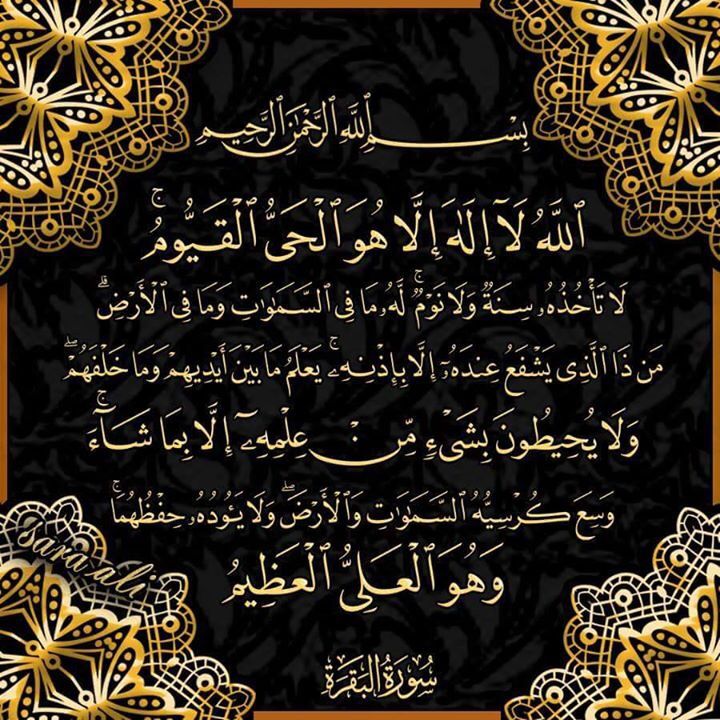 بِسْمِ ٱللَّهِ ٱلرَّحْمَٰنِ ٱلرَّحِيمِ
ٱللَّهُ لَآ إِلَٰهَ إِلَّا هُوَ ٱلْحَىُّ ٱلْقَيُّومُ ۚ
لَا تَأْخُذُهُۥ سِنَةٌ وَلَا نَوْمٌ ۚ لَّهُۥ مَا فِى ٱلسَّمَٰوَٰتِ وَمَا فِى ٱلْأَرْضِ ۗ
مَن ذَا ٱلَّذِى يَشْفَعُ عِندَهُۥٓ إِلَّا بِإِذْنِهِۦ ۚ يَعْلَمُ مَا بَيْنَ أَيْدِيهِمْ وَمَا خَلْفَهُمْ ۖ
وَلَا يُحِيطُونَ بِشَىْءٍ مِّنْ عِلْمِهِۦٓ إِلَّا بِمَا شَآءَ ۚ
وَسِعَ كُرْسِيُّهُ ٱلسَّمَٰوَٰتِ وَٱلْأَرْضَ ۖ وَلَا يَـُٔودُهُۥ حِفْظُهُمَا ۚ
وَهُوَ ٱلْعَلِىُّ ٱلْعَظِيمُ
sara ali
سُورَةُ البَقَرَةِ